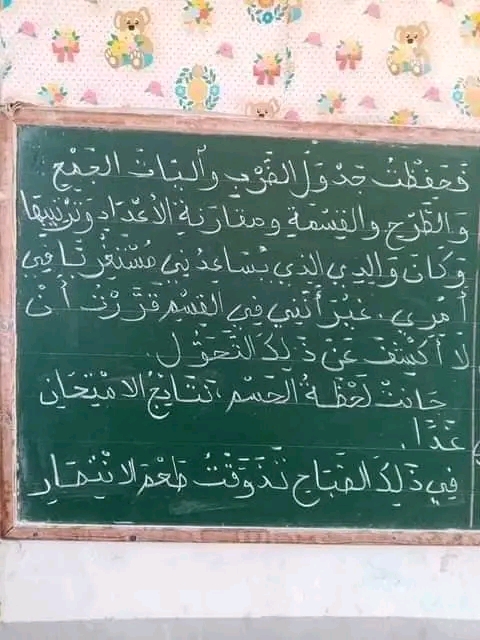 فَحَفِظْتُ جَدْوَلَ الضَّرْبِ وآلِيَاتِ الجَمْعِ
وَالطَّرْحِ والقِسْمَةِ ومقارنة الأعْدَادِ وَتَرْتِيبِهَا
وَكَانَ وَالِدِي الذي يُسَاعِدُنِي مُسْتَغْرِبًا فِي
أَمْرِي. غَيْرَ أَنَّنِي فِي القِسْمِ قَرَّرْتُ أَنْ
لَا أَكْشِفَ عَنْ ذَلِكَ التَّحَوُّلِ.
حَانَتْ لَحْظَةُ الحَسْمِ، نَتَائِجُ الامْتِحَانِ
غَدًا.
فِي ذَلِكَ الصَّبَاحِ تَذَوَّقْتُ طَعْمَ الانْتِصَارِ